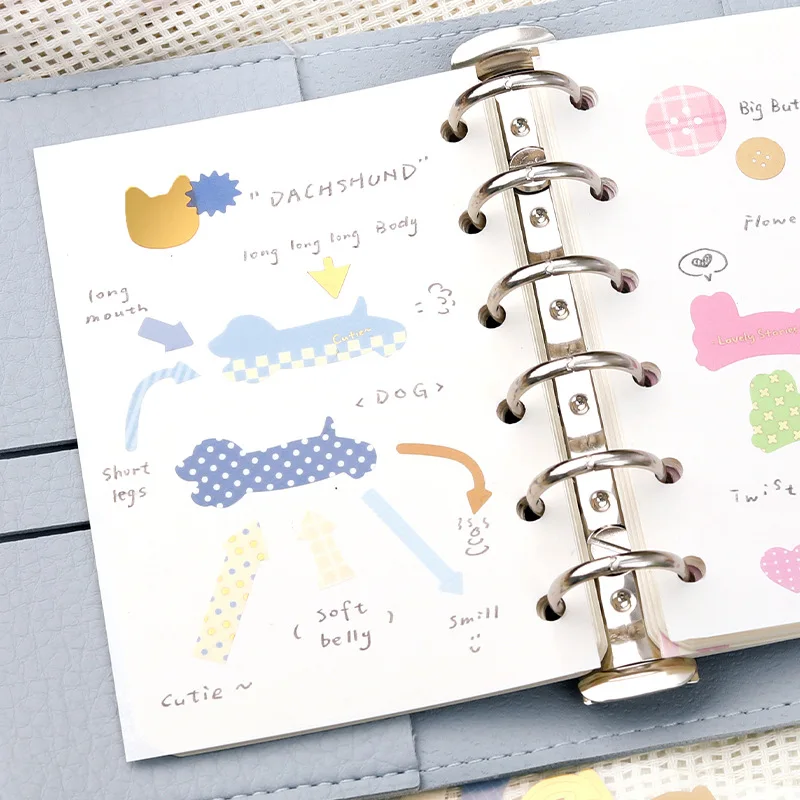 "DACHSHUND"
long long long Body
long
mouth
Cutie~
=
<DOG>
short
legs
( soft )
belly
smill
Cutie ~
Big But
Flowe
Lovely Stoore
Twist